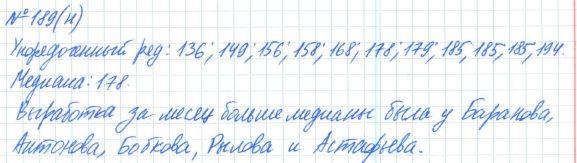 № 189(н)
Упорядоченный ряд: 136; 149; 156; 158; 168; 178; 179; 185, 185, 185, 194.
Медиана: 178.
Выработка за месяц больше медианы была у Баранова,
Антонова, Бобкова, Рылова и Астафьева.